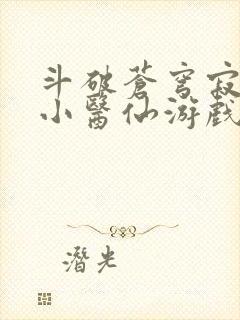 斗破蒼穹寂
小醫仙游戲
潛光